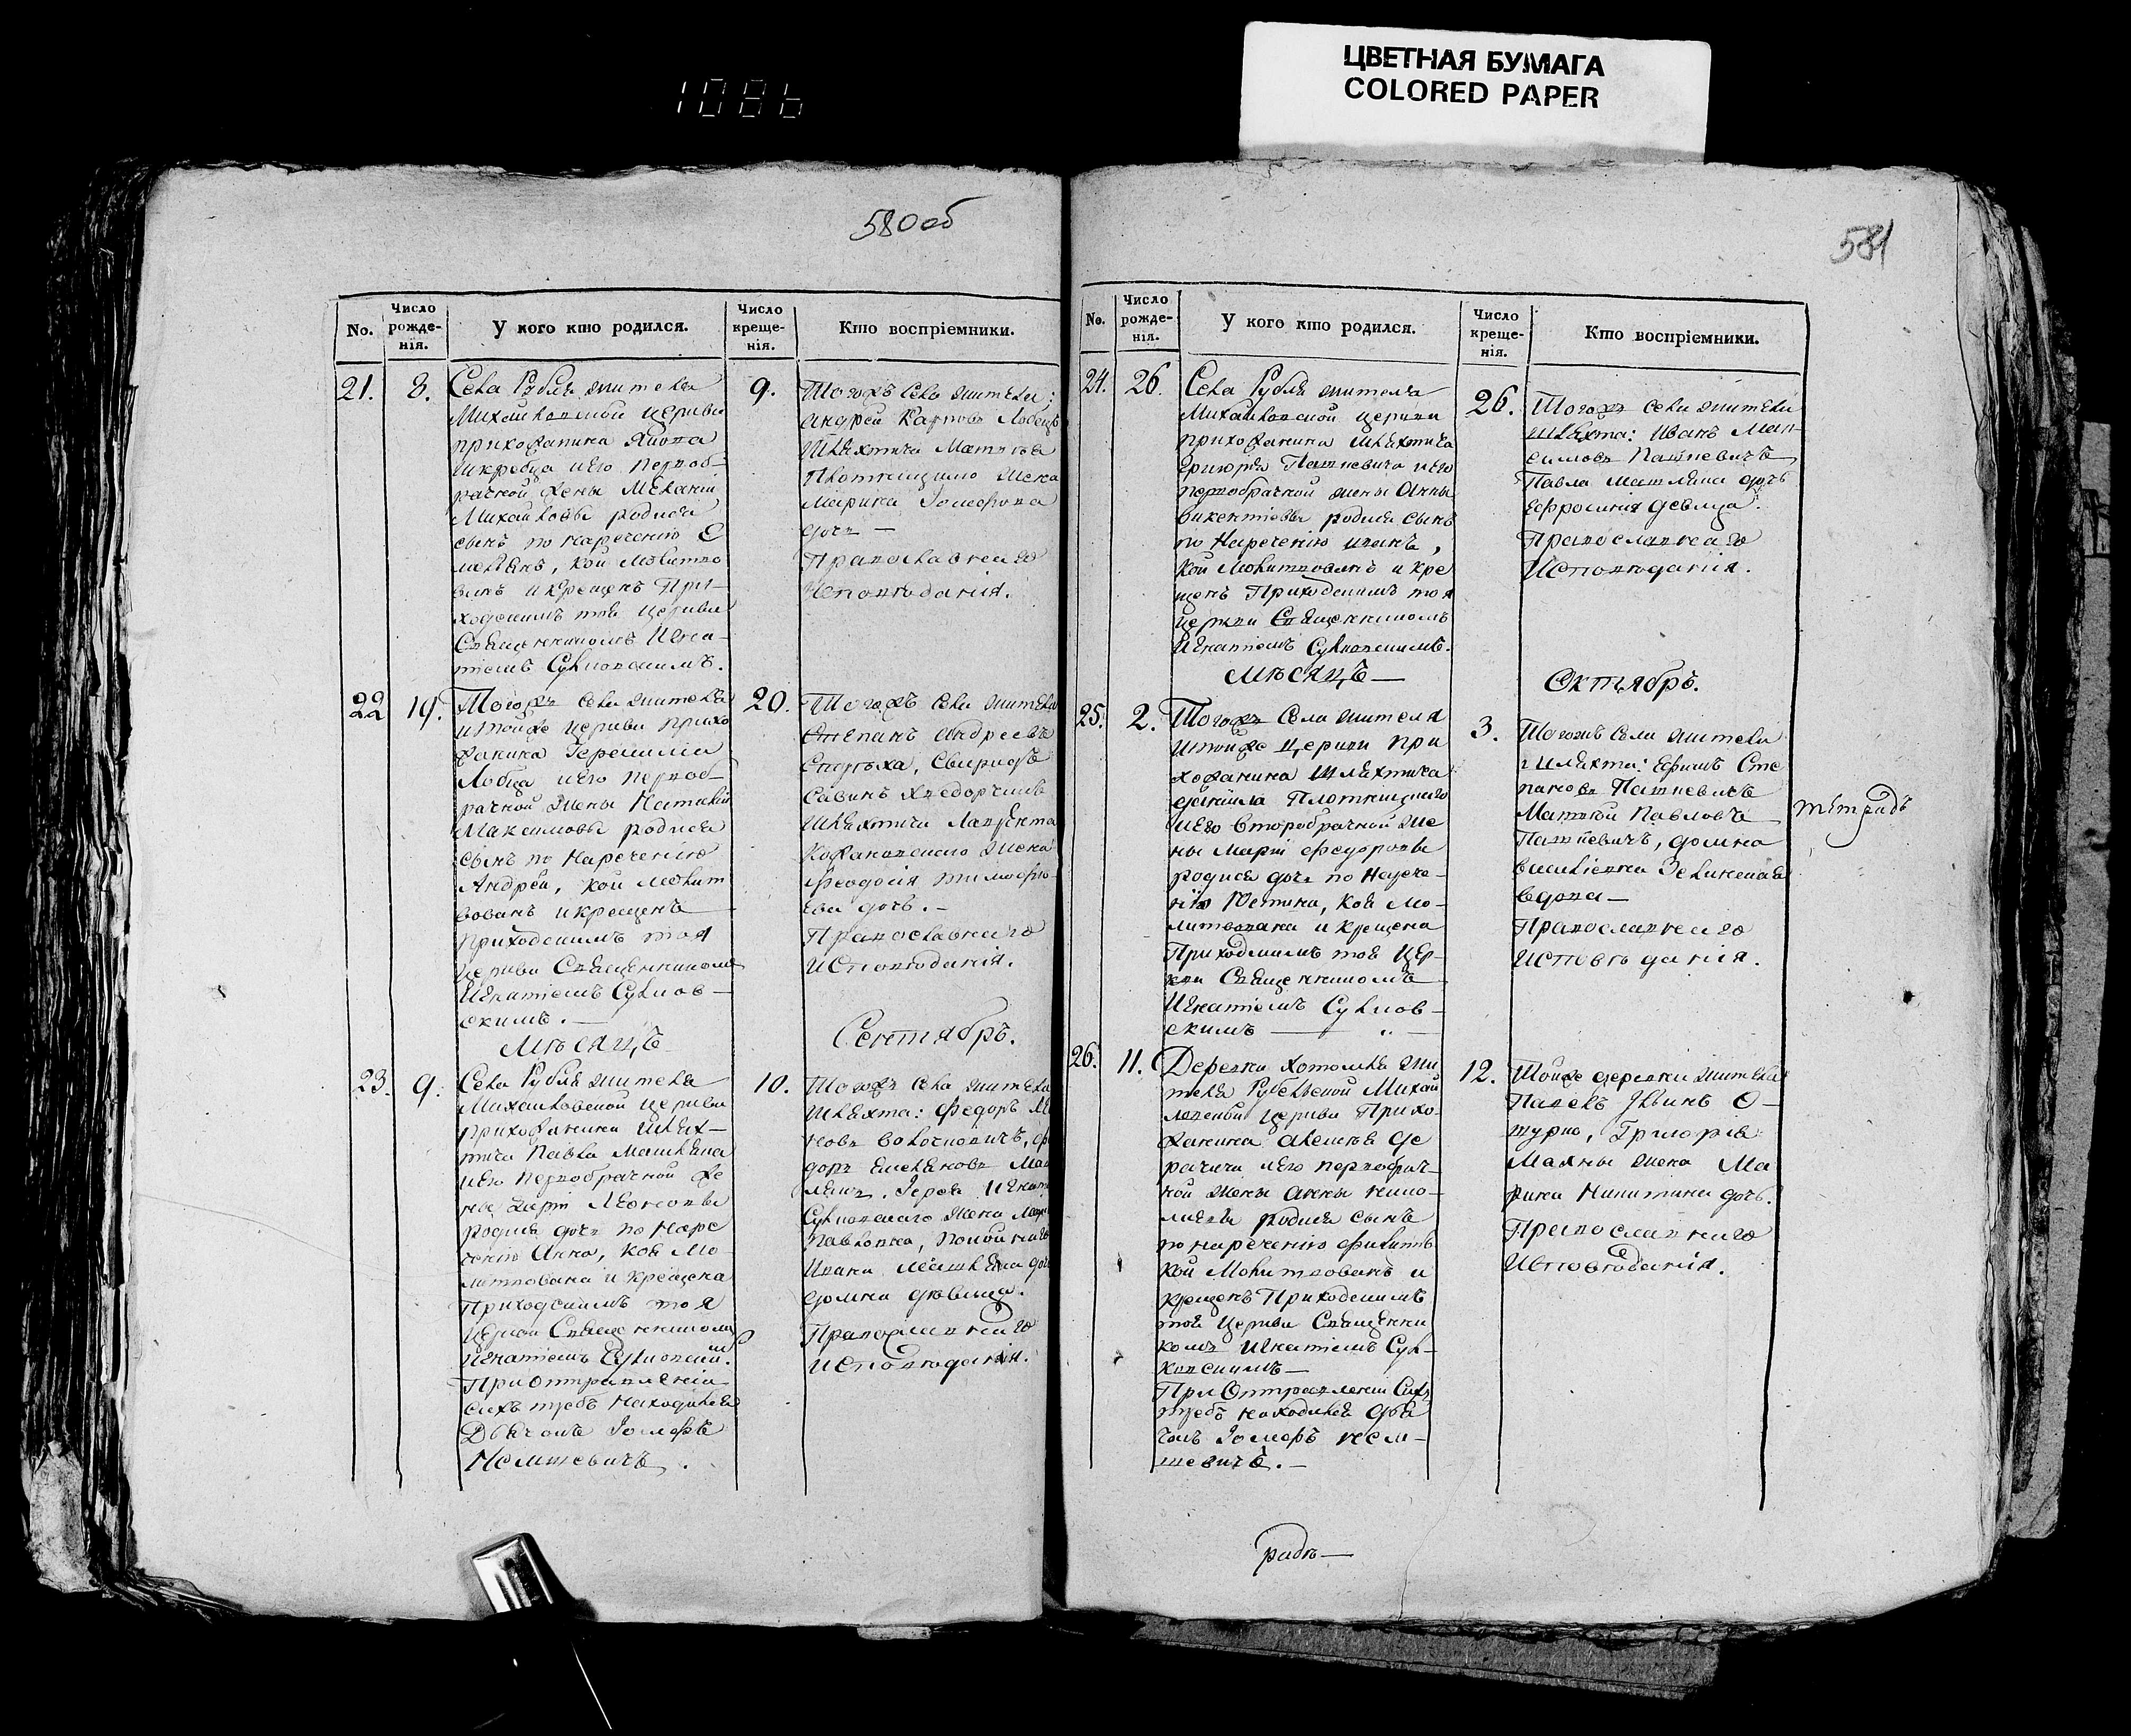 ЦВЕТНАЯ БУМАГА
COLORED PAPER
1086
580 об
No.
Число рожде-нія.
У кого кто родился.
Число креще-нія.
Кто воспріемники.
21.
8.
Села Рубля жителя
Михайловской церкви
прихожанина
и его первоб-
рачной жены Меланіи
Михайловы родися
сынъ по нареченію Е
меліянъ, кой молитво
ванъ и крещенъ При-
ходскимъ тоя церкви
Священникомъ Игна-
тіемъ Сулковскимъ.
9.
Тогожъ села жители:
Андрей Карповъ Лобецъ
Шляхтича Матвѣя
Плотницкаго жена
Марина Іосифова
дочь —
Православнаго
Исповѣданія.
22
19.
Тогожъ села жителя
и тойже церкви прихо
жанина Іереміи
Лобца и его первоб
рачной жены Наталіи
Максимовы родися
сынъ по нареченію
Андрей, кой молит
вованъ и крещенъ
приходскимъ тоя
церкви Священникомъ
Игнатіемъ Сулков-
скимъ. —
20.
Тогожъ села жители
Степанъ Андреевъ
Свиридъ
Савинъ
Шляхтича Лаврента
жена
Феодосія Тимофѣ-
ева дочь. —
Православнаго
Исповѣданія.
Мѣсяцъ
Сентябрь.
23.
9.
Села Рубля жителя
Михайловской церкви
прихожанина Шлях-
тича Павла Машляна
и его первобрачной же
ны Дарьи Леоновы
родися дочь по наре
ченію Анна, коя мо
литвована и крещена
Приходскимъ тоя
церкви Священникомъ
Игнатіемъ Сулковским.
При Отправленіи
сихъ требъ находился
Дьячокъ Іосифъ
Немшевичъ.
10.
Тогожъ села жители
Шляхта: Федоръ
Іерея Игнат
Сулковскаго жена
Павловна, покойнаго
Ивана Машляна доч
Домна дѣвица.
Православнаго
Исповѣданія.
581
No.
Число рожде-нія.
У кого кто родился.
Число креще-нія.
Кто воспріемники.
24.
26
Села Рубля жителя
Михайловской церкви
прихожанина Шляхтича
Григорія Пашкевича и его
первобрачной жены Анны
Викентіевы родися сынъ
по нареченію Иванъ,
кой молитвованъ и кре
щенъ Приходскимъ тоя
церкви Священникомъ
Игнатіемъ Сулковскимъ.
26.
Тогожъ села жители
Шляхта: Иванъ Мак-
симовъ Пашкевичъ
Павла Машляна дочь
Ефросинія девица.
Православнаго
Исповѣданія.
Мѣсяцъ —
Октябрь.
25.
2.
Тогожъ Села жителя
и тойже церкви при
хожанина Шляхтича
Даніила Плотницкаго
и его второбрачной же
ны Маріи Федоровы
родися дочь по нарече-
нію Юстина, коя мо-
литвована и крещена
Приходскимъ тоя цер-
кви Священникомъ
Игнатіемъ Сулков-
скимъ —
3.
Тогожъ села жители
Шляхта: Ефимъ Сте
пановъ Пашкевичъ
Матвѣй Павловъ
Пашкевичъ, Домна
Василіевна Зелинская
вдова —
Православнаго
Исповѣданія.
тетрадь
26.
11.
Деревни Хотомля жи
теля Рубельской Михай
ловской церкви Прихо-
жанина Алексѣя Де
рачича и его первобрач-
ной жены Анны Нико-
лаевы родися сынъ
по нареченію Филиппъ
кой молитвованъ и
крещенъ Приходскимъ
тоя церкви Священни
комъ Игнатіемъ Сул-
ковскимъ —
При Отправленіи Сихъ
требъ находился Дья
чокъ Іосифъ Нем-
шевичъ. —
12.
Тойже деревни жители
Григорія
жена Ма
рина Никитина дочь.
Православнаго
Исповѣданія.